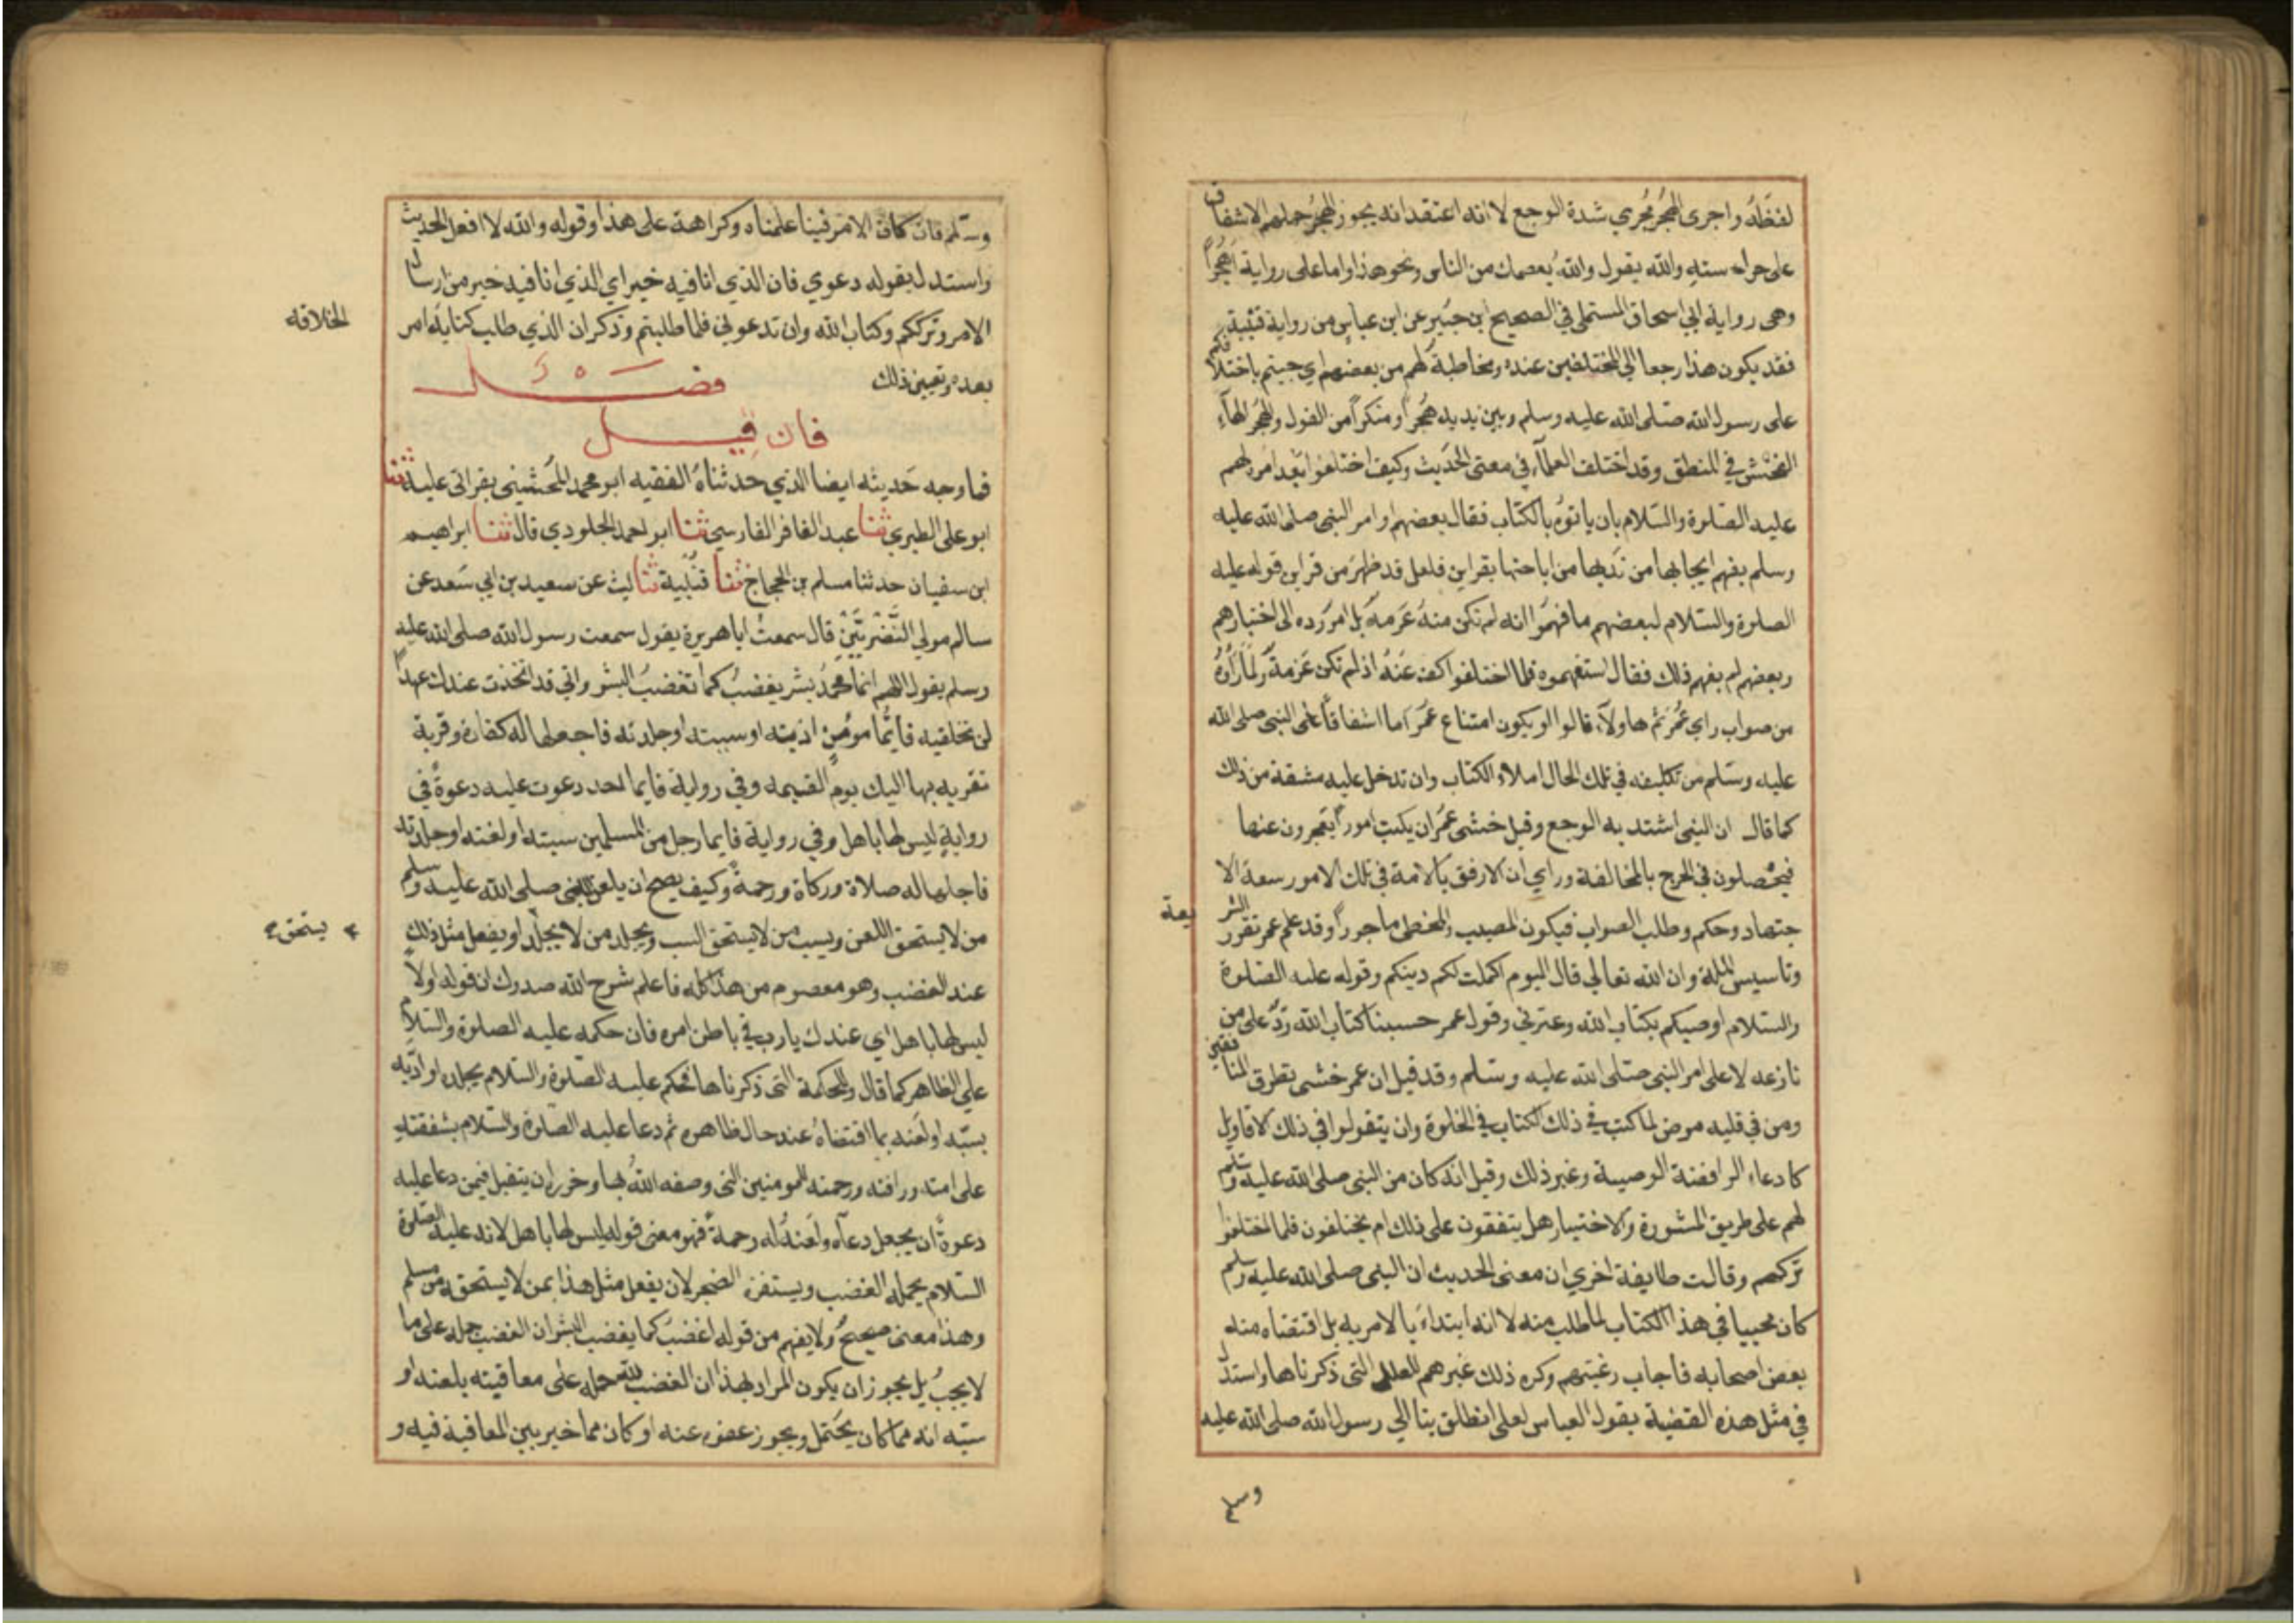 لفظه واجرى الهجر مجري شدة الوجع لا انه اعتقد انه يجوز الهجر حملهم الاشفاق
على حراسته والله يقول والله يعصمك من الناس ونحو هذا واما على رواية اهجرا
وهى رواية ابي اسحاق المستملي في الصحيح ابن جبير عن ابن عباس من رواية قتيبة
فقد يكون هذا رجعا الي المختلفين عنده ومخاطبة لهم من بعضهم اي جيتم باختلافكم
على رسول الله صلى الله عليه وسلم وبين يديه هجرا ومنكرا من القول والهجر الهاء
الفحش في المنطق وقد اختلف العلماء في معنى الحديث وكيف اختلفوا بعد امره لهم
عليه الصلوة والسلام بان ياتوه بالكتاب فقال بعضهم اوامر النبى صلى الله عليه
وسلم يفهم ايجابها من ندبها من اباحتها بقراين فلعل قد ظهر من قراين قوله عليه
الصلوة والسلام لبعضهم ما فهموا انه لم تكن منه عزمة بل امر رده الى اختيارهم
وبعضهم لم يفهم ذلك فقال استفهموه فلما اختلفوا كف عنه اذ لم تكن عزمة ولما رأوه
من صواب راي عمر ثم هاولآء قالوا او يكون امتناع عمر اما اشفاقا على النبى صلى الله
عليه وسلم من تكليفه في تلك الحال املاء الكتاب وان تدخل عليه مشقة من ذلك
كما قال ان النبى اشتد به الوجع وقيل خشى عمر ان يكتب امورا يعجزون عنها
فيحصلون في الحرج بالمخالفة وراي ان الارفق بالامة في تلك الامور سعة الا
جتهاد وحكم وطلب الصواب فيكون المصيب والمخطى ماجورا وقد علم عمر تقرر الشر
يعة
وتاسيس الملة وان الله تعالي قال اليوم اكملت لكم دينكم وقوله عليه الصلوة
والسلام اوصيكم بكتاب الله وعترتي وقول عمر حسبنا كتاب الله رد على من
نازعه لا على امر النبى صلى الله عليه وسلم وقد قيل ان عمر خشى تطرق المنافقين
ومن في قلبه مرض لما كتب في ذلك الكتاب في الخلوة وان يتقولوا في ذلك الاقاويل
كادعاء الرافضة الوصية وغير ذلك وقيل انه كان من النبى صلى الله عليه وسلم
لهم على طريق المشورة والاختيار هل يتفقون على ذلك ام يختلفون فلما اختلفوا
تركهم وقالت طايفة اخري ان معنى الحديث ان النبى صلى الله عليه وسلم
كان مجيبا في هذا الكتاب لما طلب منه لا انه ابتداء بالامر به بل اقتضاه منه
بعض اصحابه فاجاب رغبتهم وكره ذلك غيرهم للعلل التى ذكرناها واستدل
في مثل هذه القضية بقول العباس لعلى انطلق بنا الي رسول الله صلى الله عليه
وسلم
وسلم فان كان الامر فينا علمناه وكراهة على هذا وقوله والله لا افعل الحديث
واستدل بقوله دعوي فان الذي انا فيه خير اي الذي انا فيه خير من ارسال
الامر وترككم وكتاب الله وان تدعوني فلما طلبتم وذكر ان الذي طلب كتابة امر
الخلافة
بعده وتعيين ذلك فصل
فان قيل
فما وجه حديثه ايضا الذي حدثناه الفقيه ابو محمد الخشني بقراتى عليه ثنا
ابو على الطبري ثنا عبد الغافر الفارسي ثنا ابو احمد الجلودي قال ثنا ابراهيم
ابن سفيان حدثنا مسلم بن الحجاج ثنا قتيبة ثنا ليث عن سعيد بن ابي سعد عن
سالم مولي النضريين قال سمعت ابا هريرة يقول سمعت رسول الله صلى الله عليه
وسلم يقول اللهم انما محمد بشر يغضب كما تغضب البشر واني قد اتخذت عندك عهدا
لن تخلفيه فايما مومن اذيته او سببته او جلدته فاجعلها له كفارة وقربة
تقربه بها اليك يوم القيمه وفي رواية فايما احد دعوت عليه دعوة في
رواية ليس لها باهل وفي رواية فايما رجل من المسلمين سببته او لعنته او جلدته
فاجلعها له صلاة وزكاة ورحمة وكيف يصح ان يلعن النبى صلى الله عليه وسلم
من لا يستحق اللعن ويسب من لا يستحق السب ويجلد من لا يجلد او يفعل مثل ذلك
يستحق
عند الغضب وهو معصوم من هذا كله فاعلم شرح الله صدرك ان قوله اولا
ليس لها باهل اي عندك يا رب في باطن امره فان حكمه عليه الصلوة والسلام
علي الظاهر كما قال وللحكمة التى ذكرناها فحكم عليه الصلوة والسلام بجلده او ادبه
بسبه او لعنه بما اقتضاه عنده حال ظاهره ثم دعا عليه الصلوة والسلام بشفقته
على امته ورافته ورحمته المومنين التى وصفه الله بها وخرران يتقبل فيمن دعا عليه
دعوة ان يجعل دعآه ولعنه له رحمة فهو معنى قوله ليس لها باهل لا انه عليه الصلوة
السلام يحمله الغضب ويستفزه الضجر لان يفعل مثل هذا بمن لا يستحقه من مسلم
وهذا معنى صحيح ولا يفهم من قوله اغضب كما يغضب البشر ان الغضب حمله على ما
لا يجب بل يجوز ان يكون المراد بهذا ان الغضب لله حمله على معاقبته بلعنه او
سبه انه مما كان يحتمل ويجوز عفوه عنه او كان مما خير بين المعاقبة فيه و